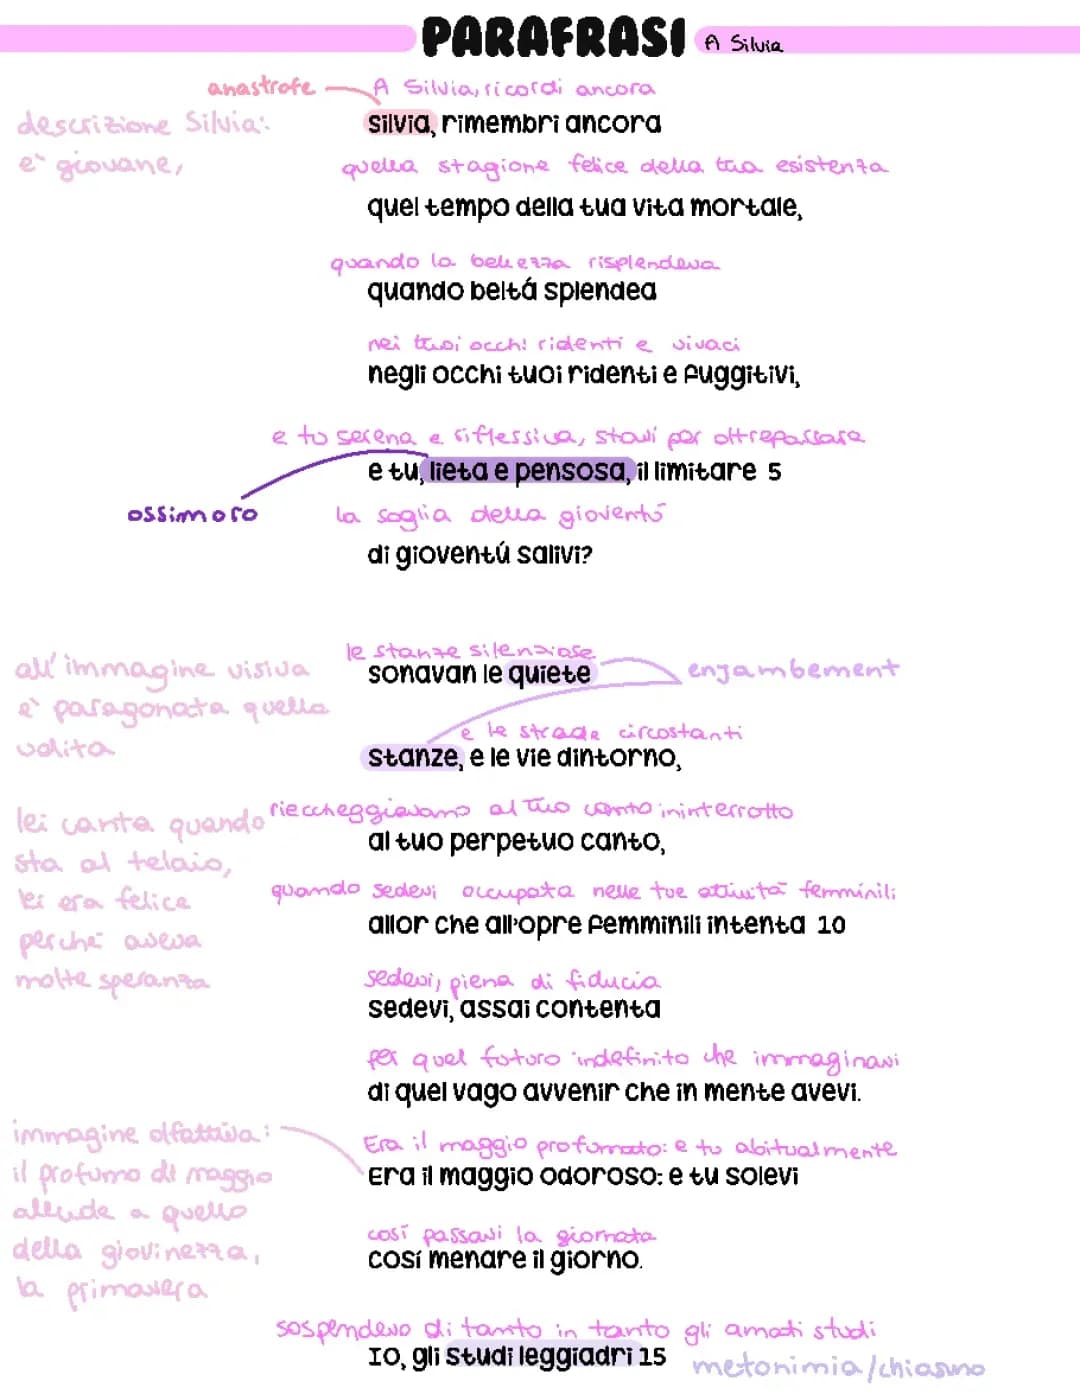 PARAFRASI A Silvia
anastrofe A Silvia, ricordi ancora
descrizione Silvia:
silvia, rimembri ancora
e` giovane,
quella stagione felice della tua esistenza
quel tempo della tua vita mortale,
quando la bellezza risplendeva
quando beltá splendea
nei tuoi occhi ridenti e vivaci
negli occhi tuoi ridenti e fuggitivi,
e tu serena e riflessiva, stavi per oltrepassare
e tu, lieta e pensosa, il limitare 5
ossimoro
la soglia della gioventú
di gioventú salivi?
le stanze silenziose
all'immagine visiva
e` paragonata quella
udita
sonavan le quiete
enjambement
e le strade circostanti
stanze, e le vie dintorno,
riecheggiavano al tuo canto ininterrotto
al tuo perpetuo canto,
lei canta quando
sta al telaio,
lei era felice
perche aveva
molte speranza
quando sedevi occupata nelle tue attivitá femminili
allor che all'opre femminili intenta 10
sedevi, piena di fiducia
sedevi, assai contenta
per quel futuro indefinito che immaginavi
di quel vago avvenir che in mente avevi.
immagine olfattiva:
il profumo di maggio
allude a quello
della giovinezza,
la primavera
Era il maggio profumato: e tu abitualmente
Era il maggio odoroso: e tu solevi
cosí passavi la giornata
cosí menare il giorno.
sospendevo di tanto in tanto gli amati studi
IO, gli studi leggiadri 15
metonimia/chiasmo